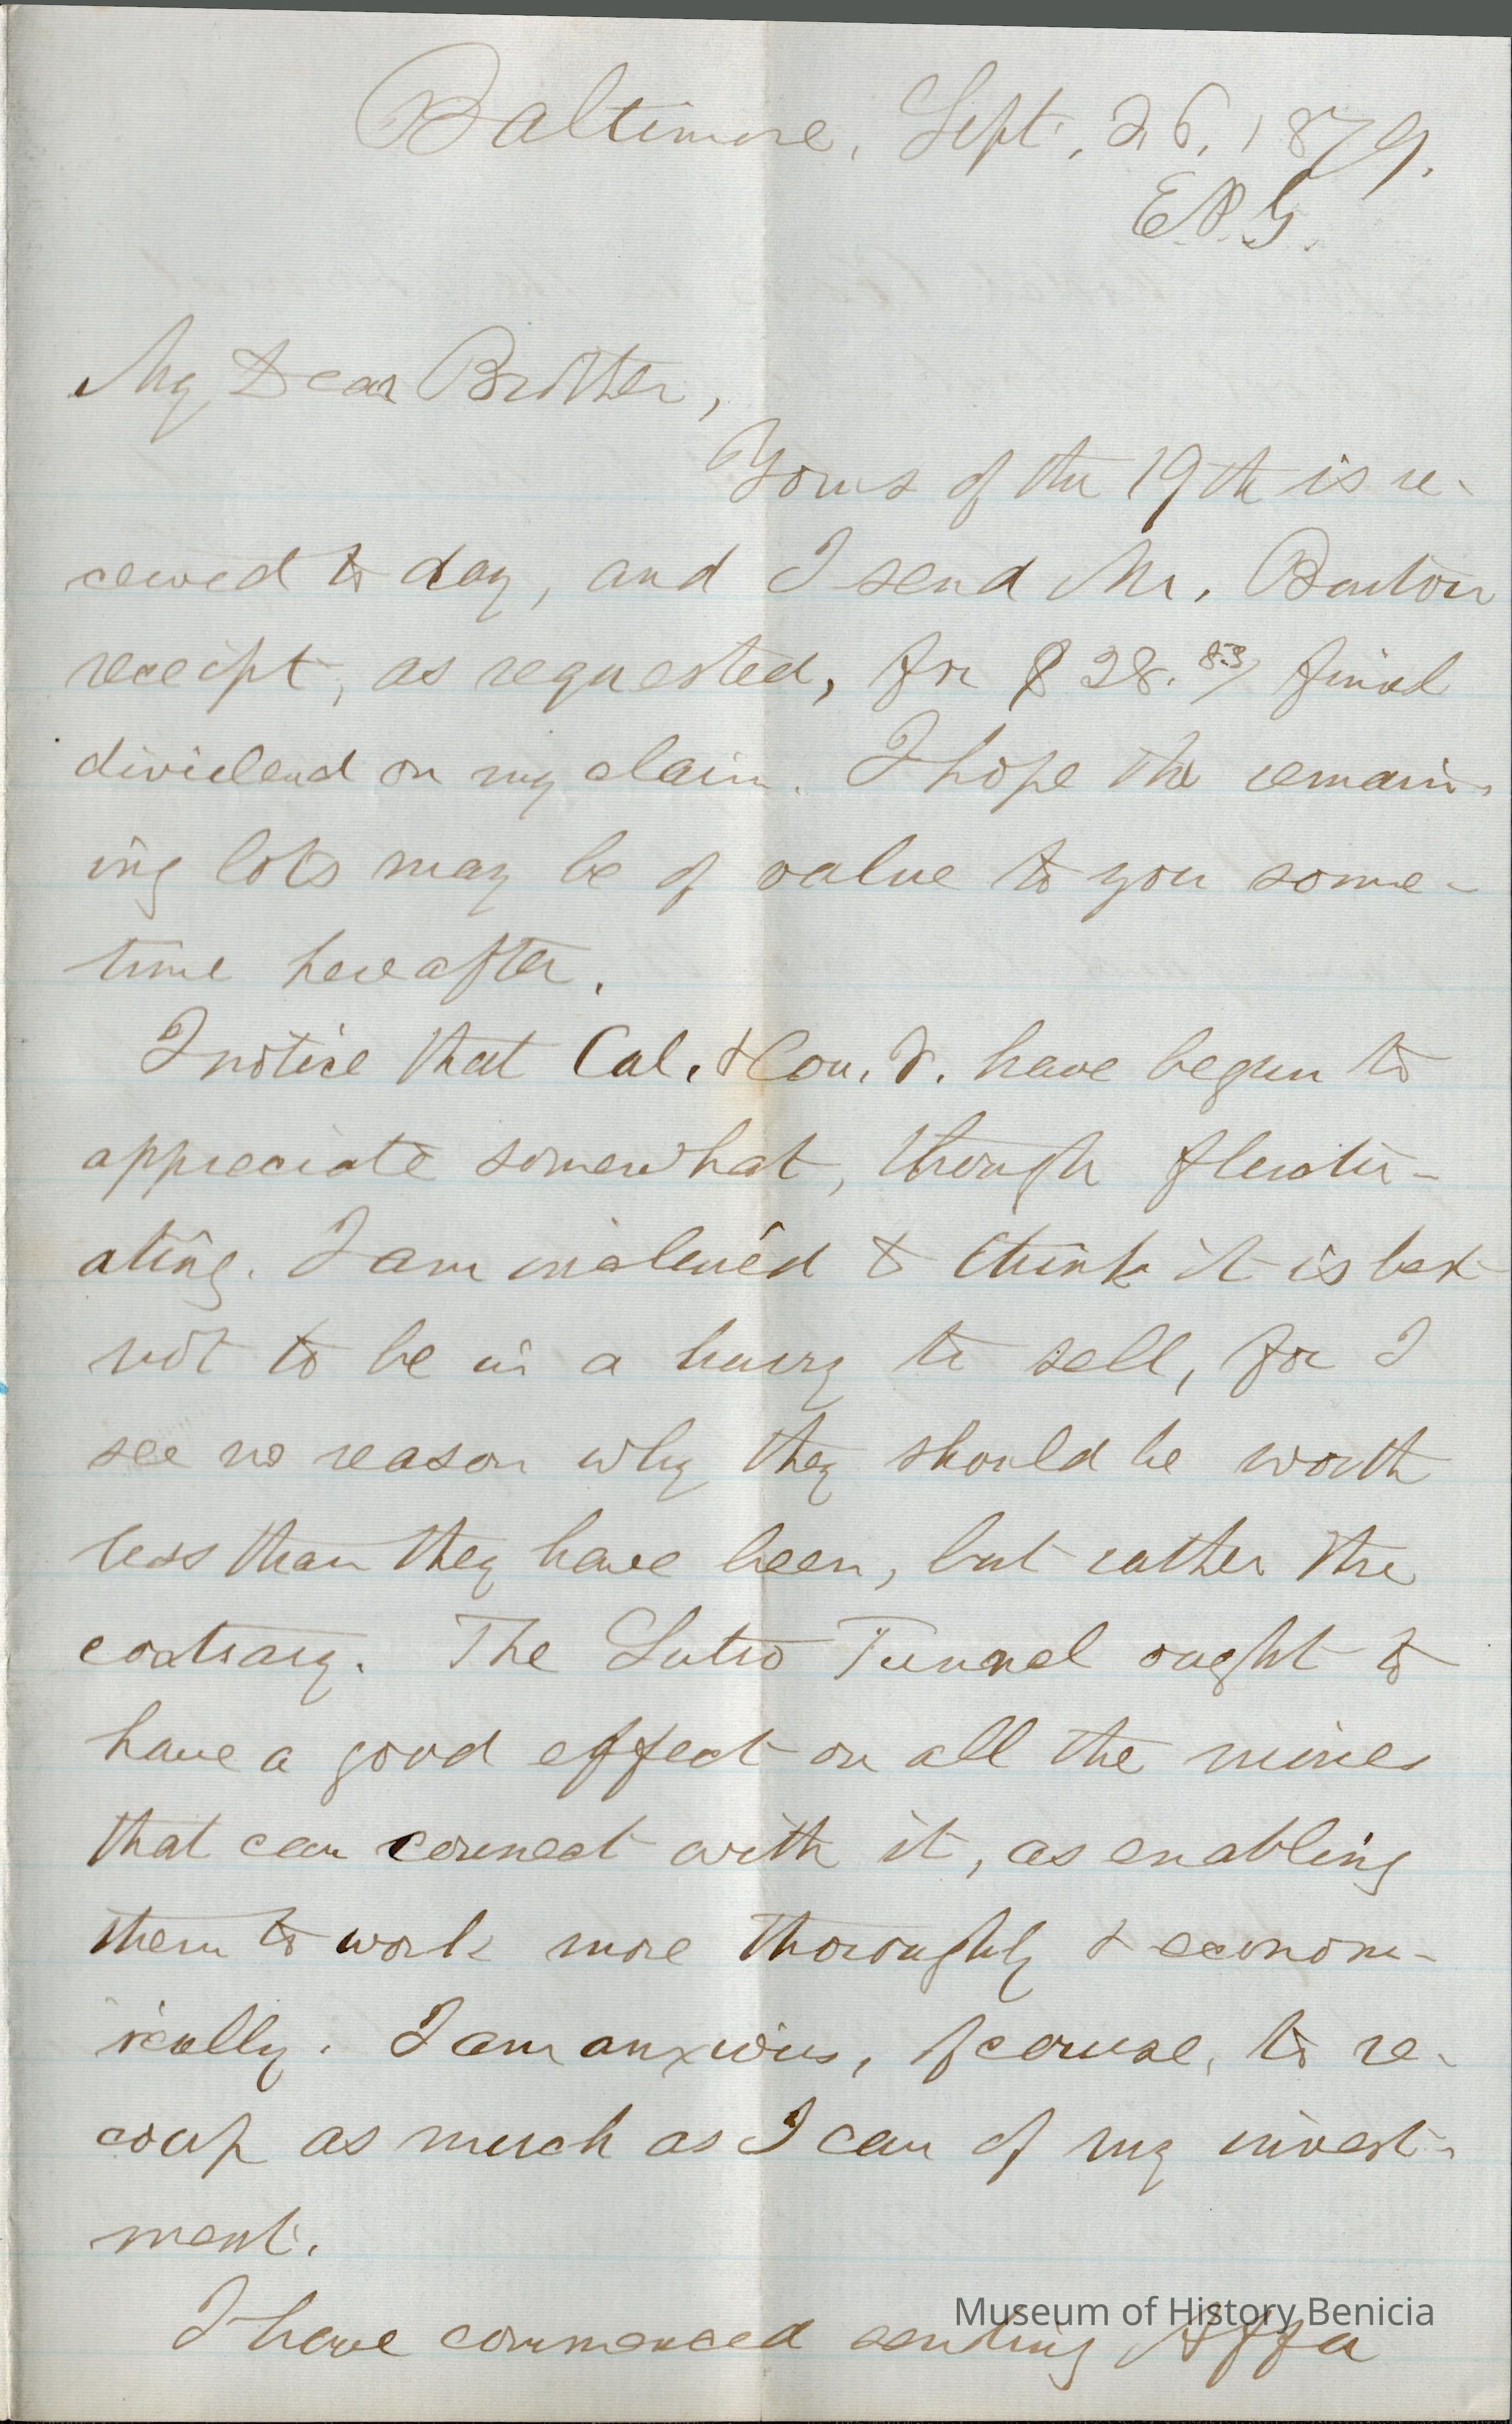 Baltimore, Sept. 26, 1879.
E.P.G.
My Dear Brother,
Yours of the 19th is re-
ceived to day, and I send Mr. Barton
receipt, as requested, for $28.83/ final
dividend on my claim. I hope the remain-
ing lots may be of value to you some-
time hereafter.
I notice that Cal. & Con. V. have begun to
appreciate somewhat, though fluctu-
ating. I am inclined to think it is best
not to be in a hurry to sell, for I
see no reason why they should be worth
less than they have been, but rather the
contrary. The Sutro Tunnel ought to
have a good effect on all the mines
that can connect with it, as enabling
them to work more thoroughly & econom-
ically. I am anxious, of course, to re-
coup as much as I can of my invest-
ment.
I have commenced sending
Museum of History Benicia